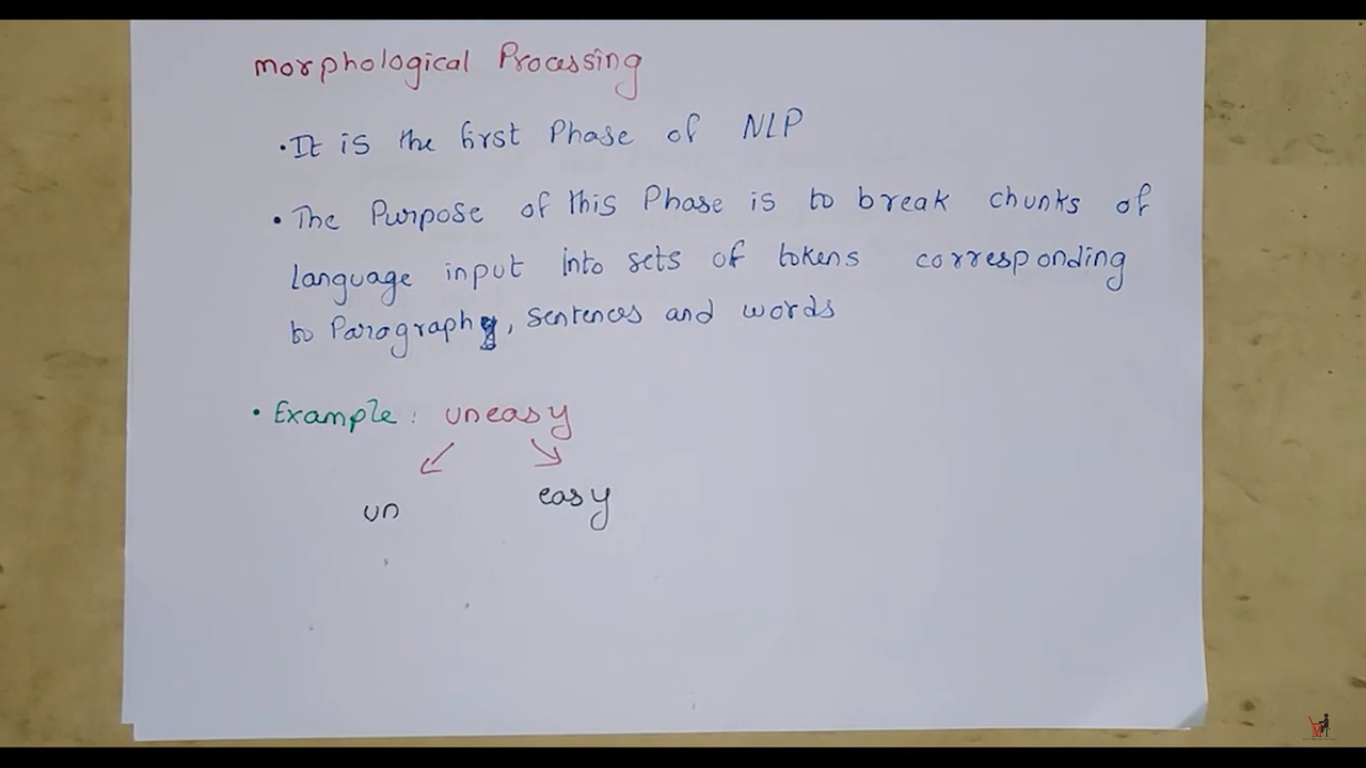 morphological Processing
• It is the first Phase of NLP
• The Purpose of this Phase is to break chunks of
language input into sets of tokens corresponding
to Paragraphs, sentences and words
• Example: uneasy
un easy